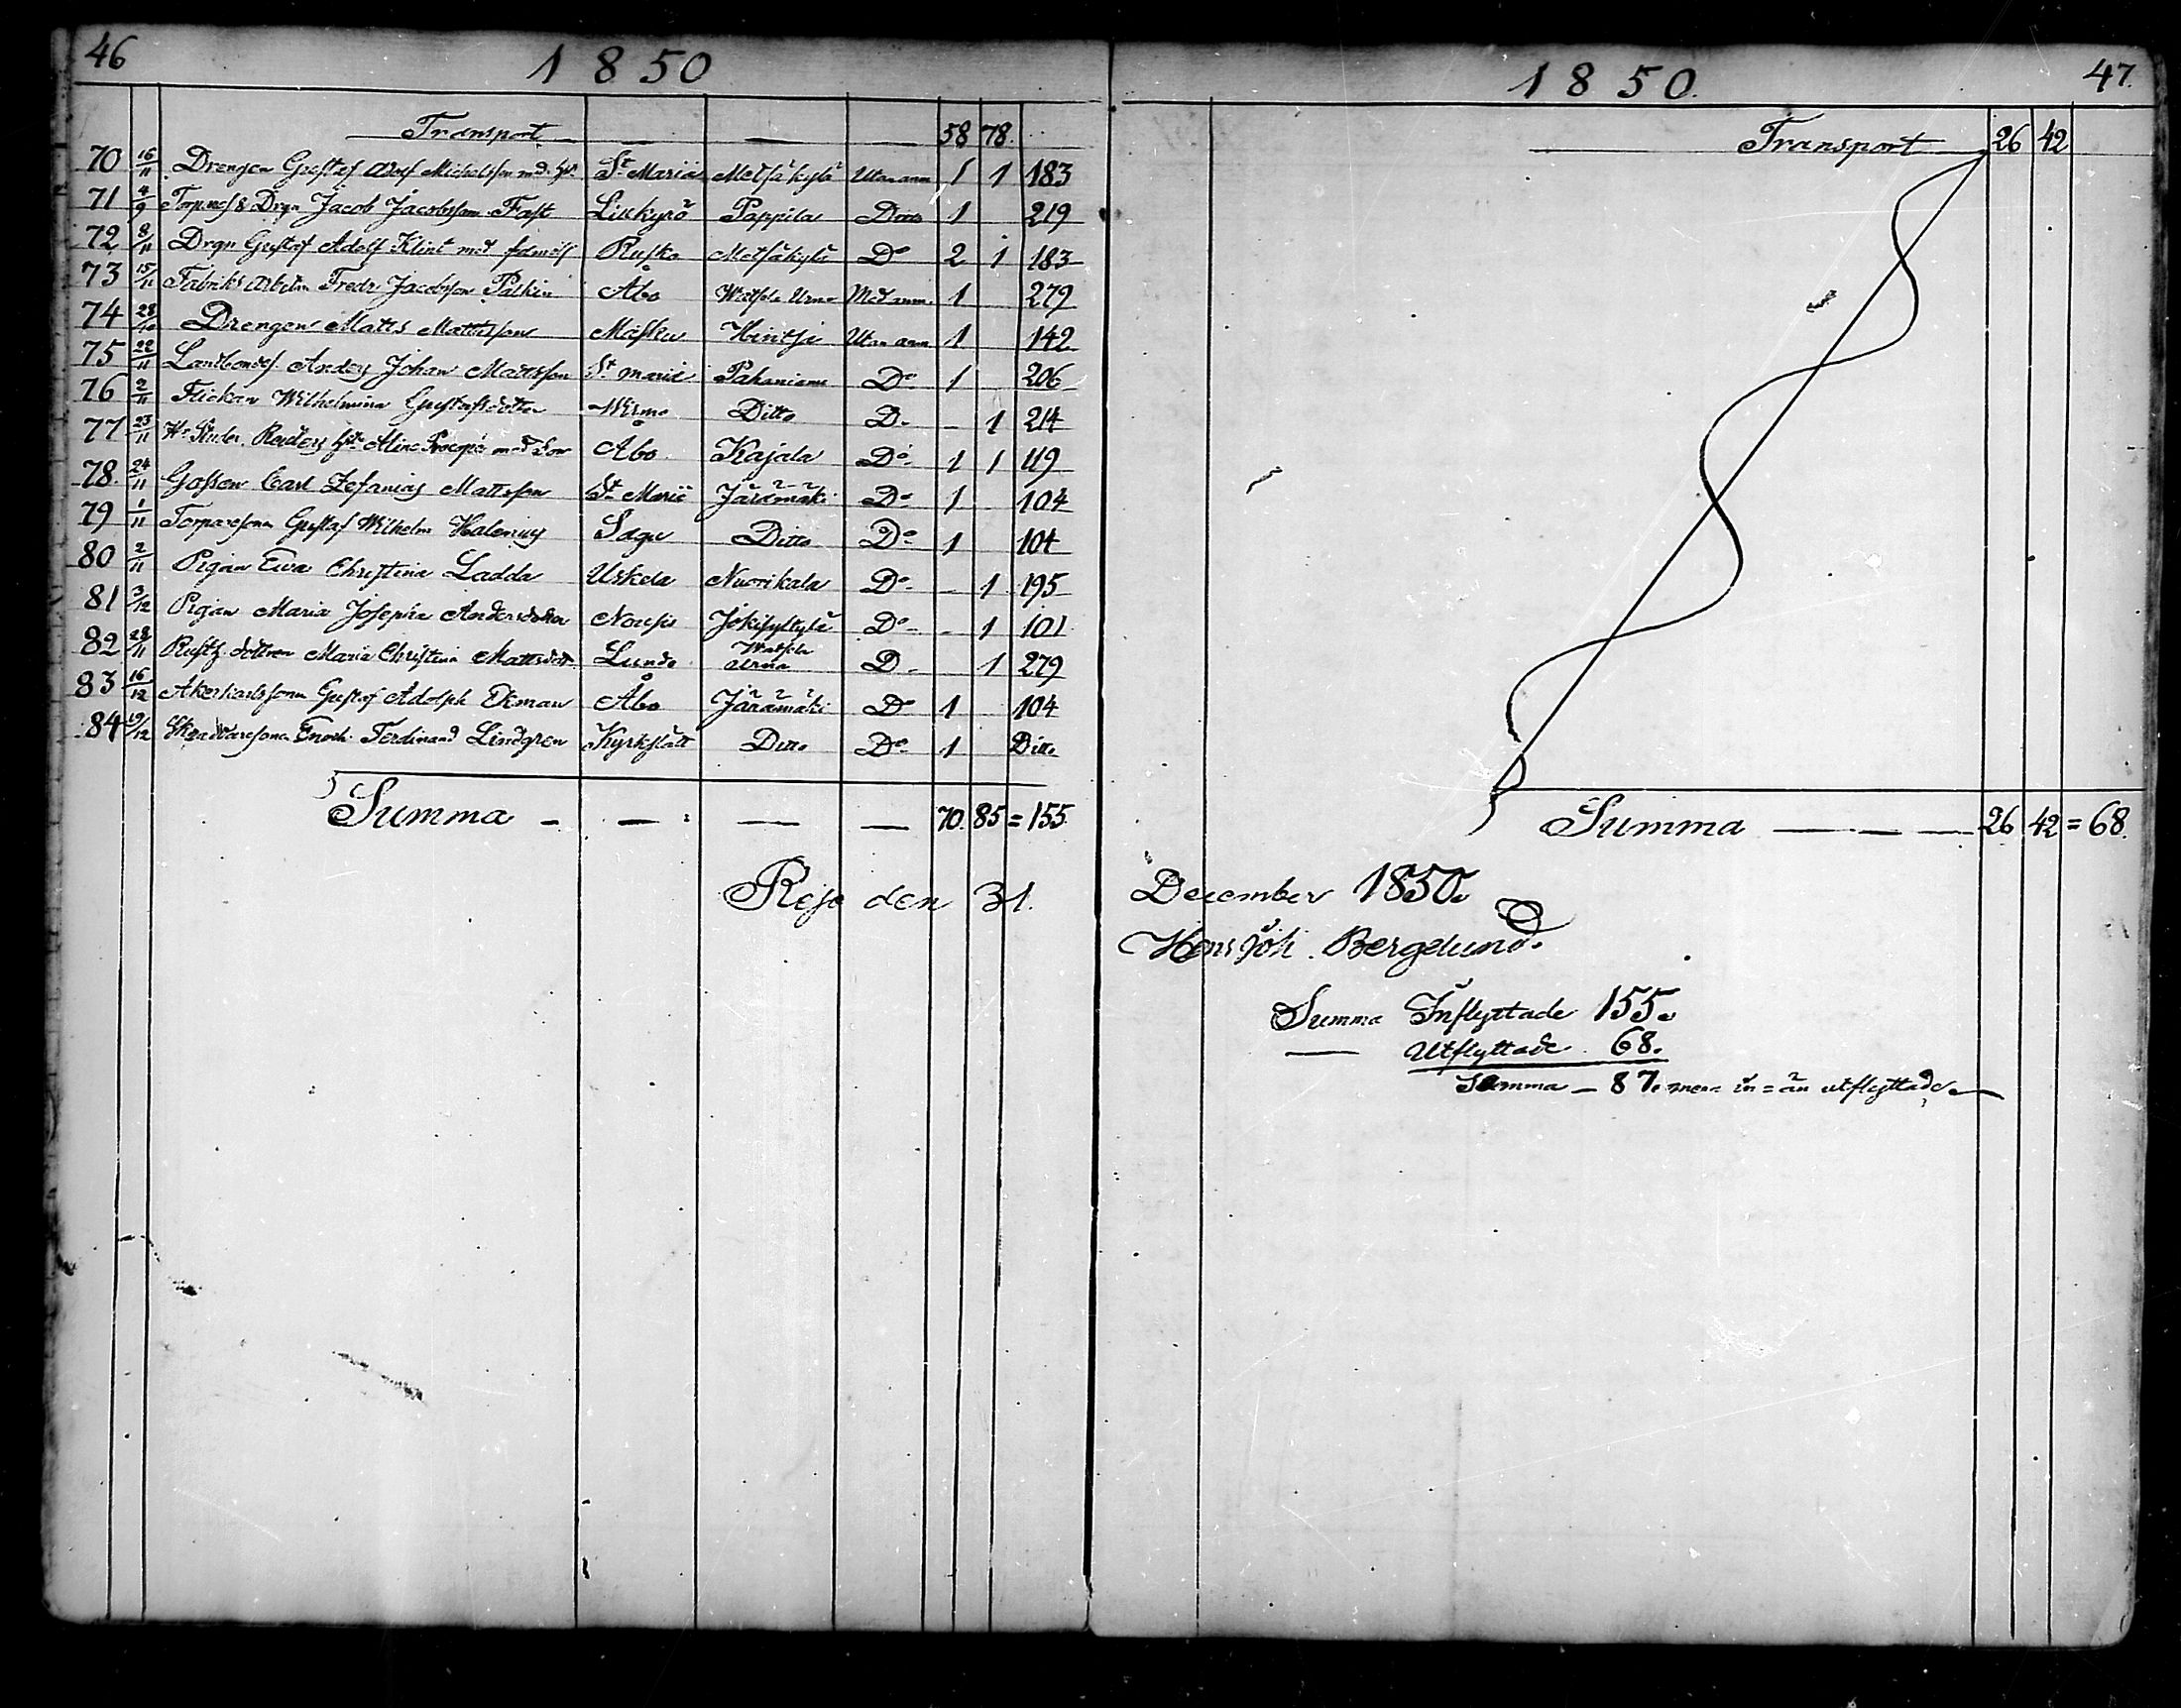 46
1850
Transport — — — 58 78.
70 16/11 Drengen Gustaf Adolf Michelsson med Hu. St Mariæ Metsäkylä Utan anm 1 1 183
71 4/9 Torpares Drgn Jacob Jacobsson Fast Liukyrö Pappila Ditto 1 219
72 8/11 Drgn Gustaf Adolf Klint med familj Rusko Metsäkylä Do 2 1 183
73 15/11 Fabriks Arbetn Fredr Jacobsson Palkin Åbo Urma Med anm. 1 279
74 28/10 Drengen Matts Mattsson Masku Hintsa Utan anm 1 142
75 22/11 Landbondes. Anders Johan Mattsson St mariæ Pahaniemi Do 1 206
76 2/11 Flickan Wilhelmina Gustafsdotter Wirmo Ditto D. - 1 214
77 23/11 Hr Studer. Hstr Alina Procopé med Son Åbo Kajala Do 1 1 119
78. 24/11 Gossen Carl Zefanias Mattsson St Mariæ Järämäki Do 1 104
79 1/11 Torparesonen Gustaf Wilhelm Halenius Sagu Ditto Do 1 104
80 2/11 Pigan Ewa Christina Ladda Uskela Nuorikala Do - 1 195
81 3/12 Pigan Maria Josepha Andersdotter Nousis Jokisyltylä Do - 1 101
82 28/11 Rusth. dottren Maria Christina Mattsdotr Lundo Urma D - 1 279
83 16/12 Åkerkarlssonen Gustaf Adolph Ekman Åbo Järämäki Do 1 104
84 19/12 Skräddaresonen Enoch Ferdinand Lindgren Kyrkslätt Ditto Do 1 Ditto
Summa - — — — 70. 85 = 155
Reso den 31.
1850.
47.
Transport 26 42
Summa — — — 26 42 = 68.
December 1850.
Hens Joh. Berglund.
Summa Inflyttade 155.
— Utflyttade 68.
Summa — 87. mera in = än utflyttade.